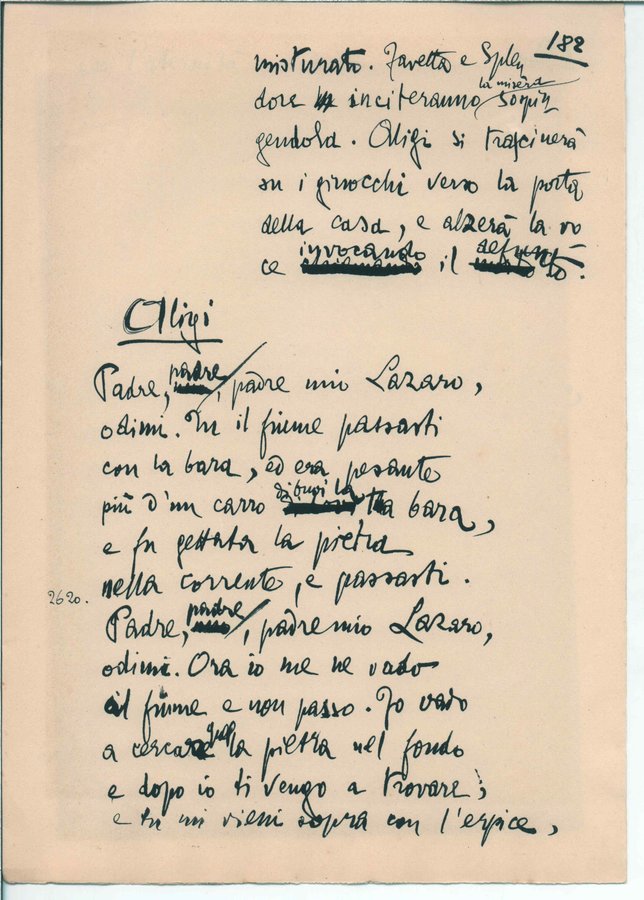 182
misturato. Favetta e Splen
dore inciteranno la misera sospin
gendola. Aligi si trascinerà
su i ginocchi verso la porta
della casa, e alzerà la vo
ce invocando il defunto.
Aligi
Padre, padre, padre mio Lazaro,
odimi. Tu il fiume passasti
con la bara, ed era pesante
più d'un carro di buoi la tua bara,
e fu gettata la pietra
nella corrente, e passasti.
2620.
Padre, padre, padre mio Lazaro,
odimi. Ora io me ne vado
il fiume e non passo. Io vado
a cercare quella pietra nel fondo
e dopo io ti vengo a trovare;
e tu mi vieni sopra con l'erpice,